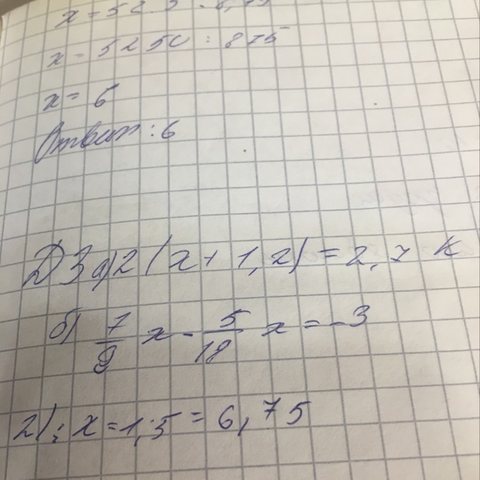 x = 5250 : 875
x = 6
Ответ: 6
ДЗ а) 2(x + 1,2) = 2,7 x
б) 7/9 x - 5/18 x = -3
2) : x = 1,5 = 6,75